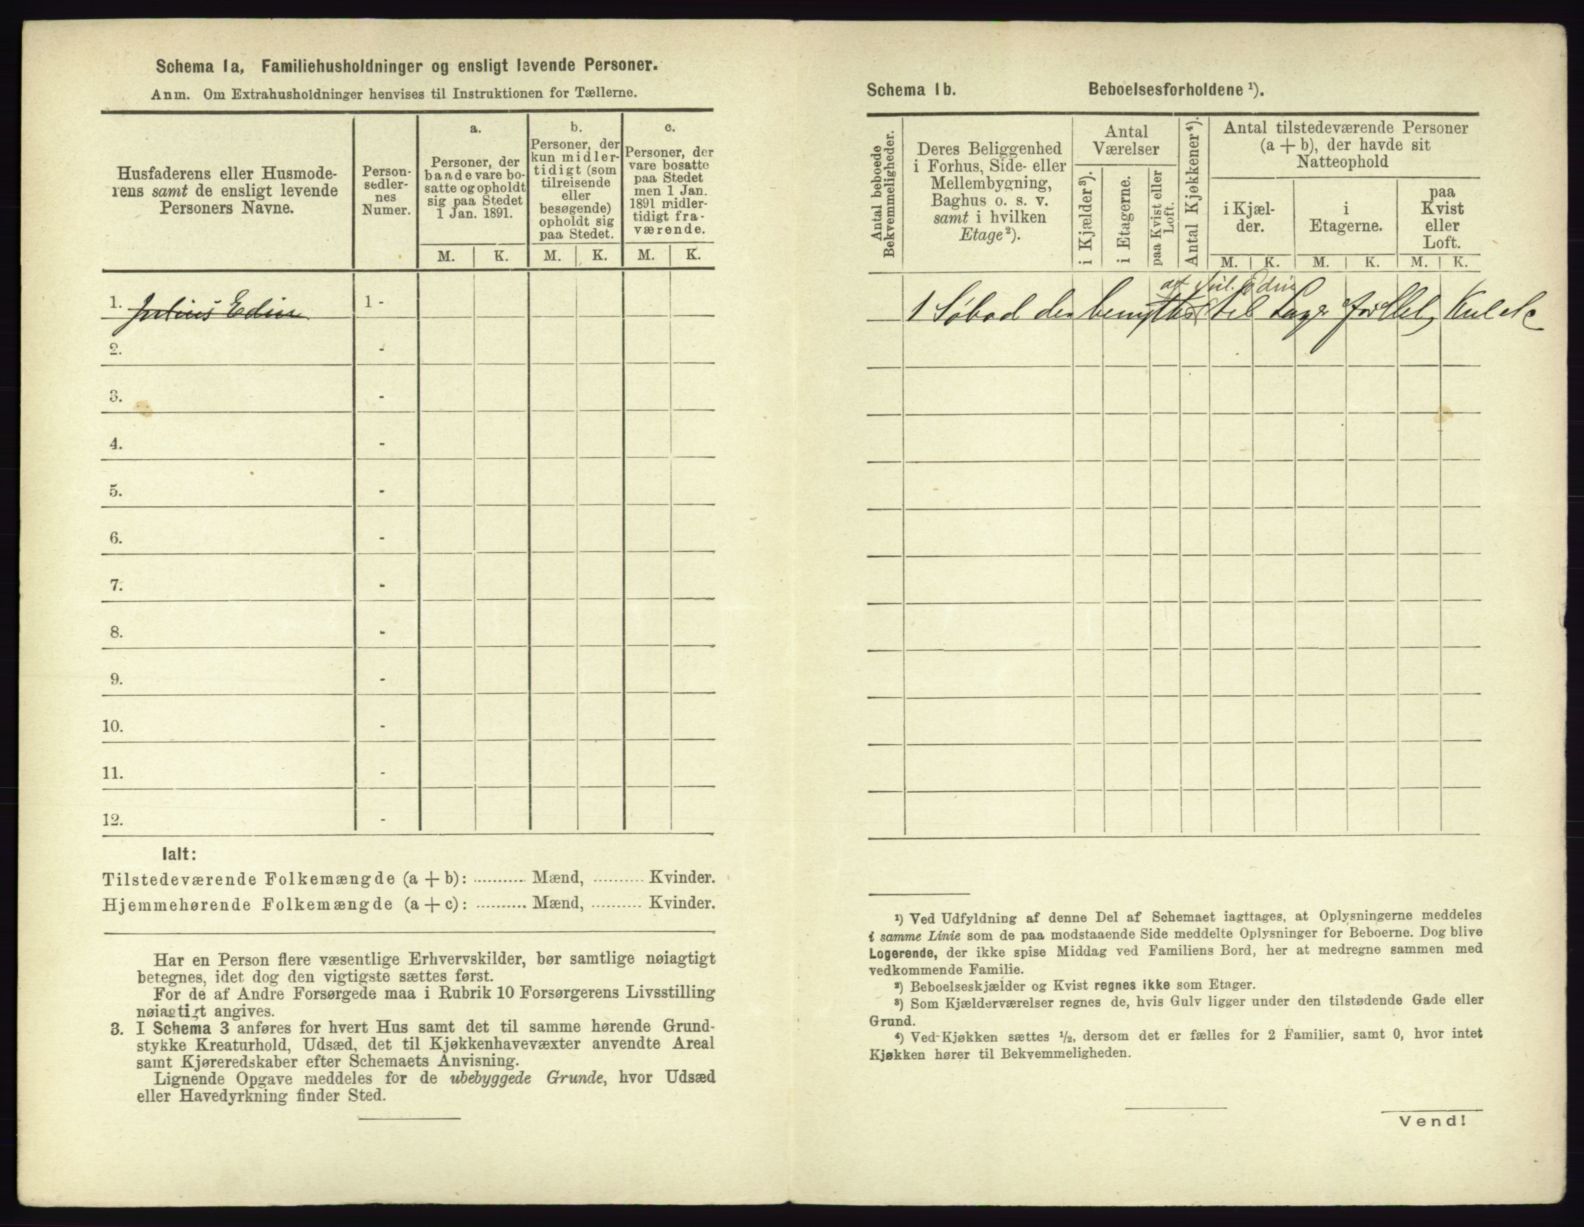 Schema 1a, Familiehusholdninger og ensligt levende Personer.
Anm. Om Extrahusholdninger henvises til Instruktionen for Tællerne.
Husfaderens eller Husmode-
rens samt de ensligt levende
Personers Navne.
Person-
sedler-
nes
Numer.
a.
Personer, der
baade vare bo-
satte og opholdt
sig paa Stedet
1 Jan. 1891.
b.
Personer, der
kun midler-
tidigt (som
tilreisende
eller
besøgende)
opholdt sig
paa Stedet.
c.
Personer, der
vare bosatte
paa Stedet
men 1 Jan.
1891 midler-
tidigt fra-
værende.
M. K. M. K. M. K.
1. Julius Edin 1 -
2. -
3. -
4. -
5. -
6. -
7. -
8. -
9. -
10. -
11. -
12. -
Ialt:
Tilstedeværende Folkemængde (a + b): .......... Mænd, .......... Kvinder.
Hjemmehørende Folkemængde (a + c): .......... Mænd, .......... Kvinder.
Har en Person flere væsentlige Erhvervskilder, bør samtlige nøiagtigt
betegnes, idet dog den vigtigste sættes først.
For de af Andre Forsørgede maa i Rubrik 10 Forsørgerens Livsstilling
nøiagtigt angives.
3. I Schema 3 anføres for hvert Hus samt det til samme hørende Grund-
stykke Kreaturhold, Udsæd, det til Kjøkkenhavevæxter anvendte Areal
samt Kjøreredskaber efter Schemaets Anvisning.
Lignende Opgave meddeles for de ubebyggede Grunde, hvor Udsæd
eller Havedyrkning finder Sted.
Schema 1b. Beboelsesforholdene ¹).
Antal beboede
Bekvemmeligheder.
Deres Beliggenhed
i Forhus, Side- eller
Mellembygning,
Baghus o. s. v.
samt i hvilken
Etage²).
Antal
Værelser
i Kjælder³).
i Etagerne.
paa Kvist eller
Loft.
Antal Kjøkkener⁴).
Antal tilstedeværende Personer
(a + b), der havde sit
Natteophold
i Kjæl-
der.
i
Etagerne.
paa
Kvist
eller
Loft.
M. K. M. K. M. K.
af Jul. Edin
1 Søbod der benyttes til Lager for
¹) Ved Udfyldning af denne Del af Schemaet iagttages, at Oplysningerne meddeles
i samme Linie som de paa modstaaende Side meddelte Oplysninger for Beboerne. Dog blive
Logerende, der ikke spise Middag ved Familiens Bord, her at medregne sammen med
vedkommende Familie.
²) Beboelseskjælder og Kvist regnes ikke som Etager.
³) Som Kjælderværelser regnes de, hvis Gulv ligger under den tilstødende Gade eller
Grund.
⁴) Ved Kjøkken sættes ½, dersom det er fælles for 2 Familier, samt 0, hvor intet
Kjøkken hører til Bekvemmeligheden.
Vend!